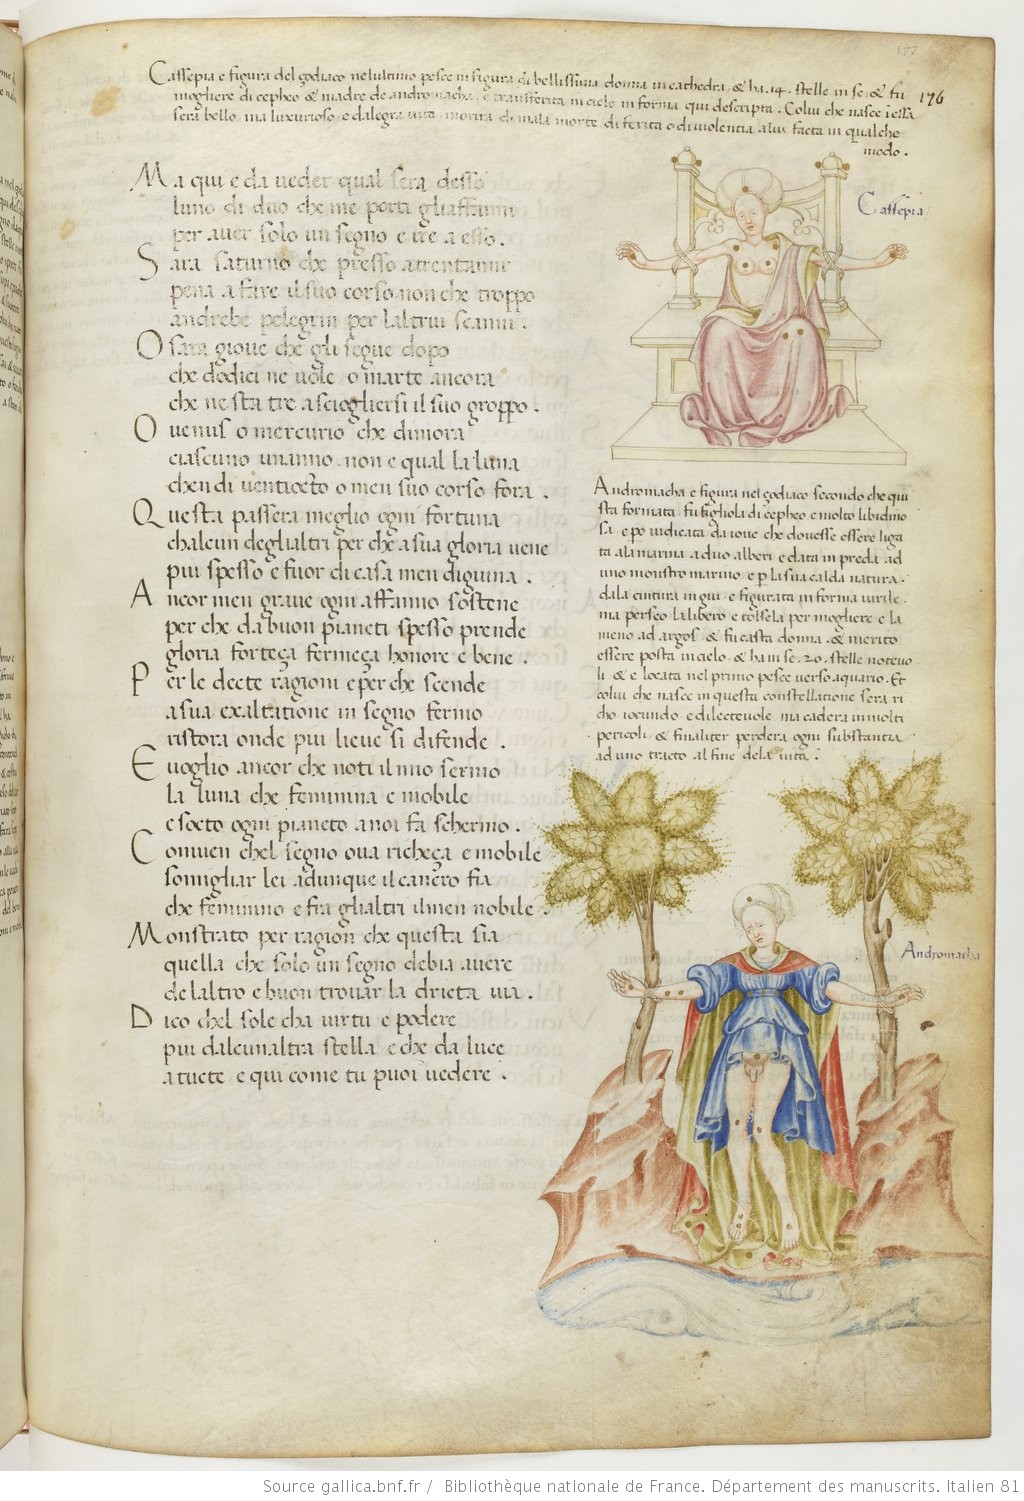 177
176
Cassepia e figura del çodiaco nelultimo pesce in figura di bellissima donna in cathedra, & ha .14. stelle in se, & fu
mogliere di cepheo & madre de andromacha, e transferita in cielo in forma qui descripta. Colui che nasce i essa
sera bello, ma luxurioso, e dalegra uita, morira di mala morte di ferita o di uiolentia alui facta in qualche
modo.
Ma qui e da ueder qual sera desso
luno di duo che me porti gliaffanni
per auer solo un segno e tre a esso.
Sara saturno che presso a trentanni
pena a fare il suo corso non che troppo
andrebe pelegrin per laltrui scanni.
O sara gioue che gli segue dopo
che dodici ne uole o marte ancora
che ne sta tre a sciogliersi il suo groppo.
O uenus o mercurio che dimora
ciascuno unanno. non e qual la luna
chen di uentiocto o men suo corso fora.
Questa passera meglio ogni fortuna
chalcun deglialtri per che a sua gloria uene
piu spesso e fuor di casa men digiuna.
Ancor men graue ogni affanno sostene
per che da buon pianeti spesso prende
gloria forteça fermeça honore e bene.
Per le decte ragioni e per che scende
a sua exaltatione in segno fermo
ristora onde piu lieue si difende.
E uoglio ancor che noti il mio sermo
la luna che feminina e mobile
e socto ogni pianeto a noi fa schermo.
Conuien chel segno oua richeça e mobile
somigliar lei adunque il cancro fia
che feminino e fra glialtri ilmen nobile.
Monstrato per ragion che questa sia
quella che solo un segno debia auere
de laltro e buon trouar la dricta uia.
Dico chel sole cha uirtu e podere
piu dalcunaltra stella e che da luce
a tucte e qui come tu puoi uedere.
Cassepia
Andromacha e figura nel çodiaco secondo che qui
sta formata. fu figliola di cepheo e molto libidino
sa. e po iudicata da ioue che douesse essere liga
ta ala marina a duo alberi e data in preda ad
uno monstro marino e p la sua calda natura.
dala cintura in giu e figurata in forma uirile.
ma perseo la libero e tolsela per mogliere e la
meno ad argos & fu casta donna. & merito
essere posta in cielo & ha in se .20. stelle noteuo
li & e locata nel primo pesce uerso aquario. Et
colui che nasce in questa constellatione sera ri
cho iocundo e dilecteuole ma cadera in molti
pericoli & finaliter perdera ogni substantia
ad uno tracto al fine dela uita.
Andromacha
Source gallica.bnf.fr / Bibliothèque nationale de France. Département des manuscrits. Italien 81